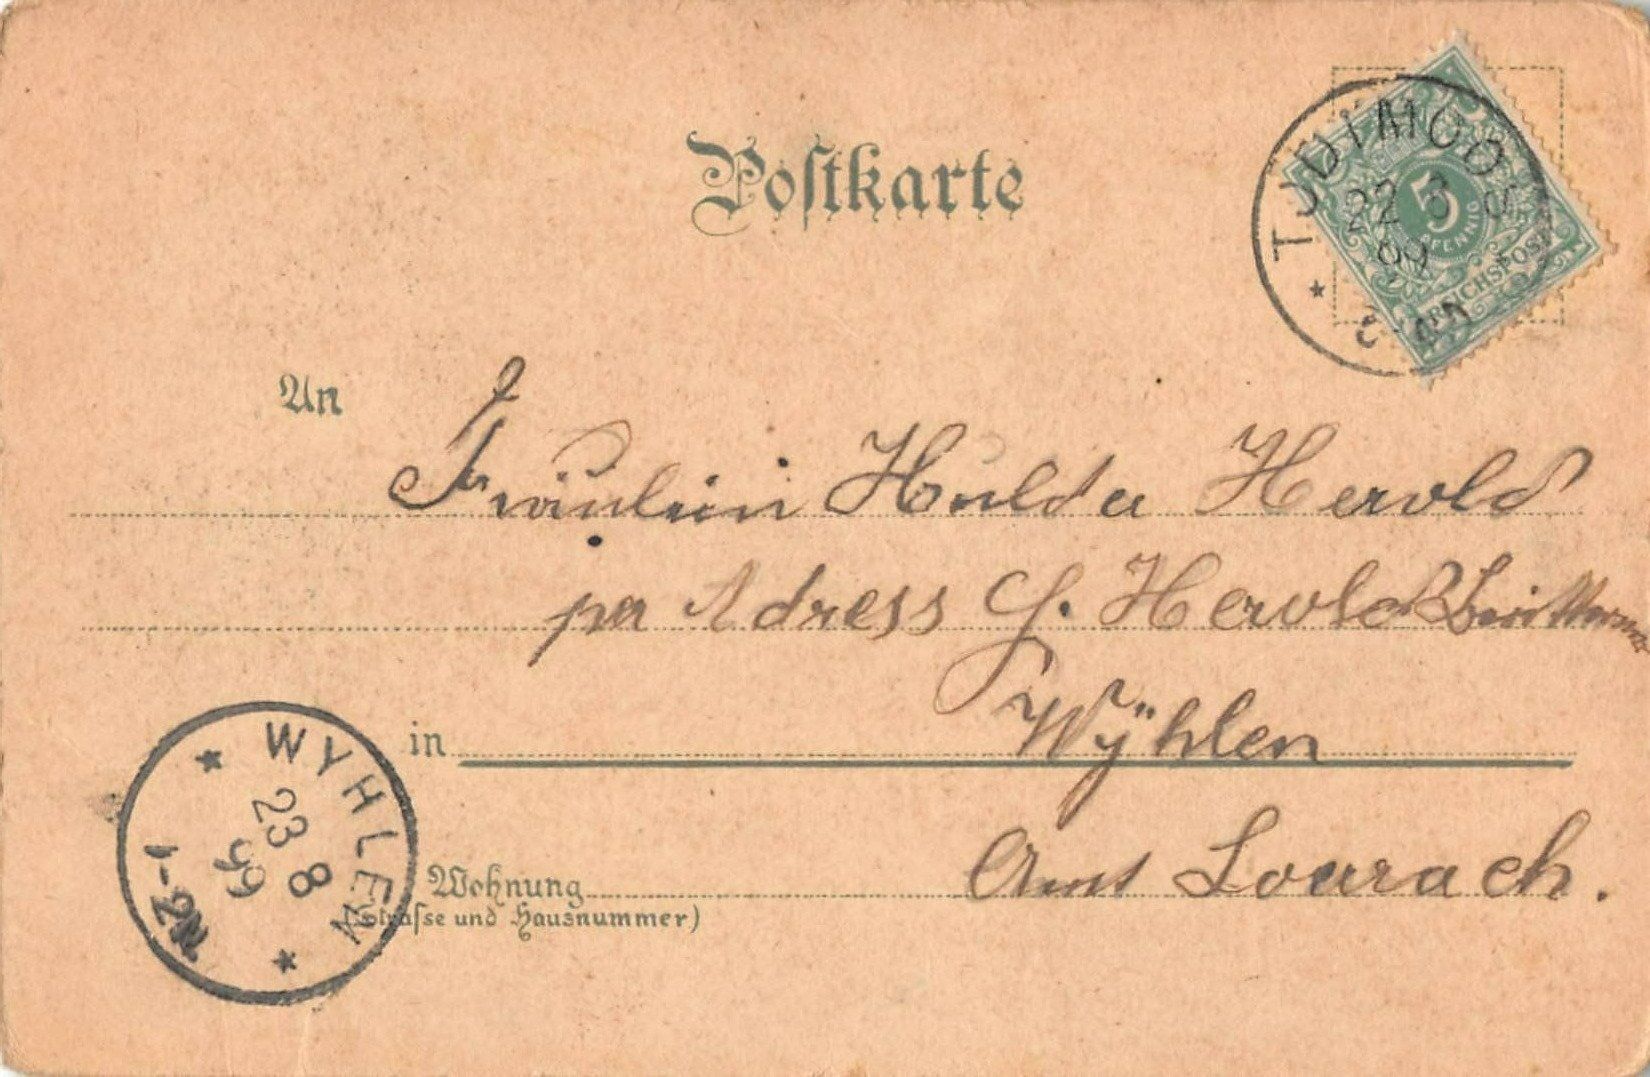 Postkarte
TODTMOOS
22 8
99
5
PFENNIG
REICHSPOST
An
Fräulein Hulda Herold
per Adress G. Herold
in Wÿhlen
WYHLEN
23 8
99
1-2N
Wohnung Amt Loerrach.
(Strasse und Hausnummer)